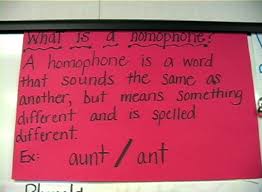 What is a homophone?
A homophone is a word
that sounds the same as
another, but means something
different and is spelled
different.
Ex: aunt / ant